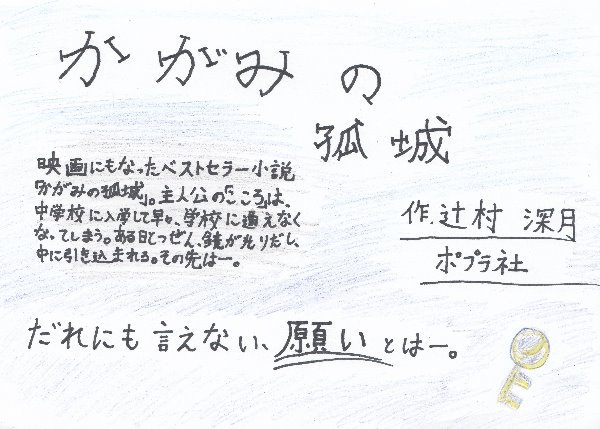 かがみの
孤城
映画にもなったベストセラー小説
「かがみの孤城」。主人公の「こころ」は、
中学校に入学して早々、学校に通えなく
なってしまう。ある日とつぜん、鏡が光りだし、
中に引き込まれる。その先はー。
作.辻村 深月
ポプラ社
だれにも言えない、願いとはー。